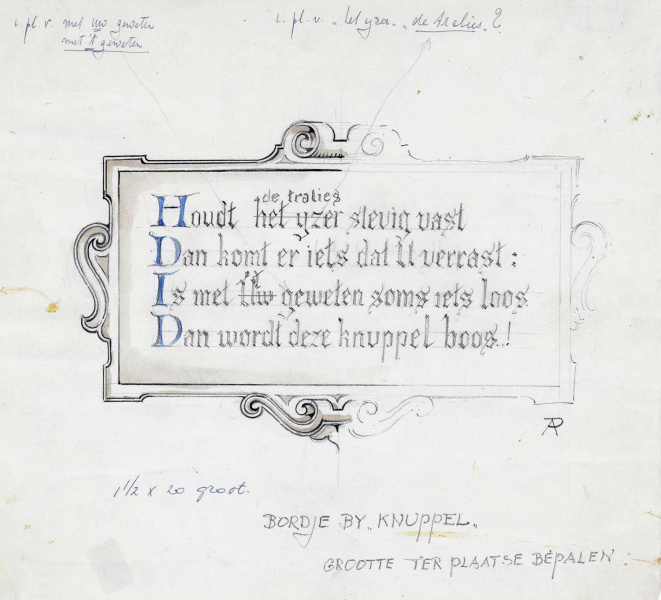 i. pl. v. met uw geweten
met 't geweten
i. pl. v. „het yzer„ „de tralies„?
de tralies
Houdt het yzer stevig vast
Dan komt er iets dat U verrast:
't
Is met Uw geweten soms iets loos
Dan wordt deze knuppel boos!
AP
1 1/2 x zo groot.
BORDJE BY „KNUPPEL„
GROOTTE TER PLAATSE BEPALEN